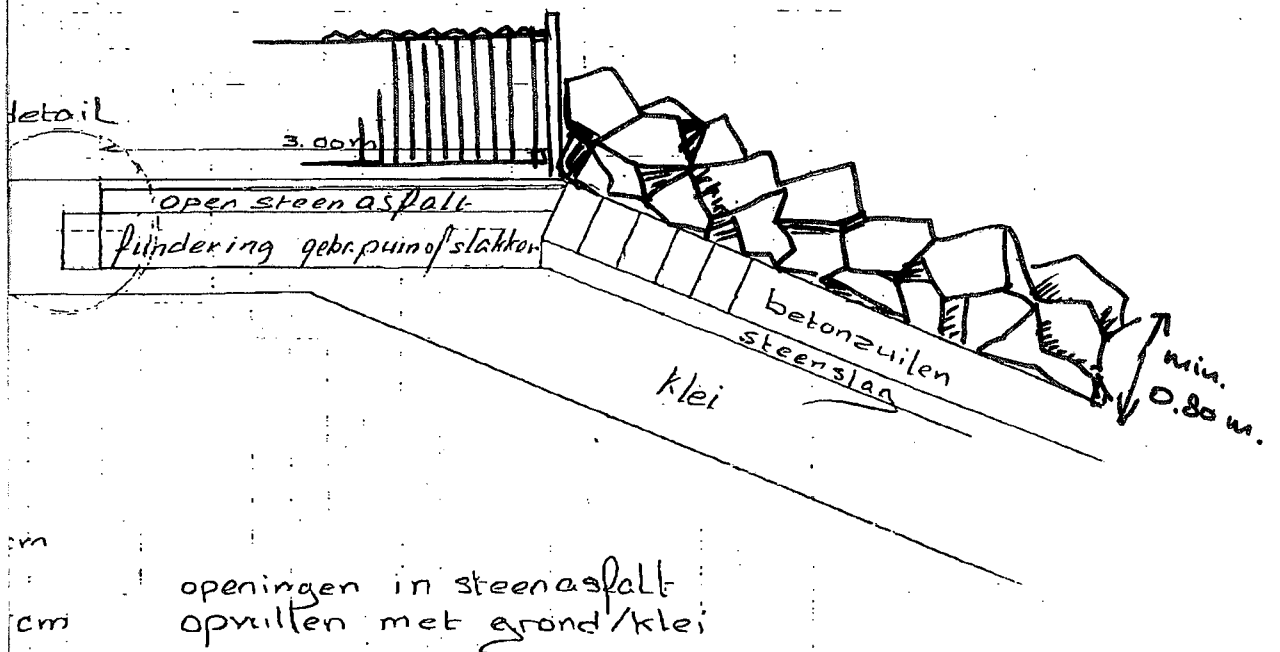 detail
3.00m
open steenasfalt
fundering gebr.puin of slakken
betonzuilen
steenslag
klei
min.
0.80 m.
cm
cm
openingen in steenasfalt
opvullen met grond/klei